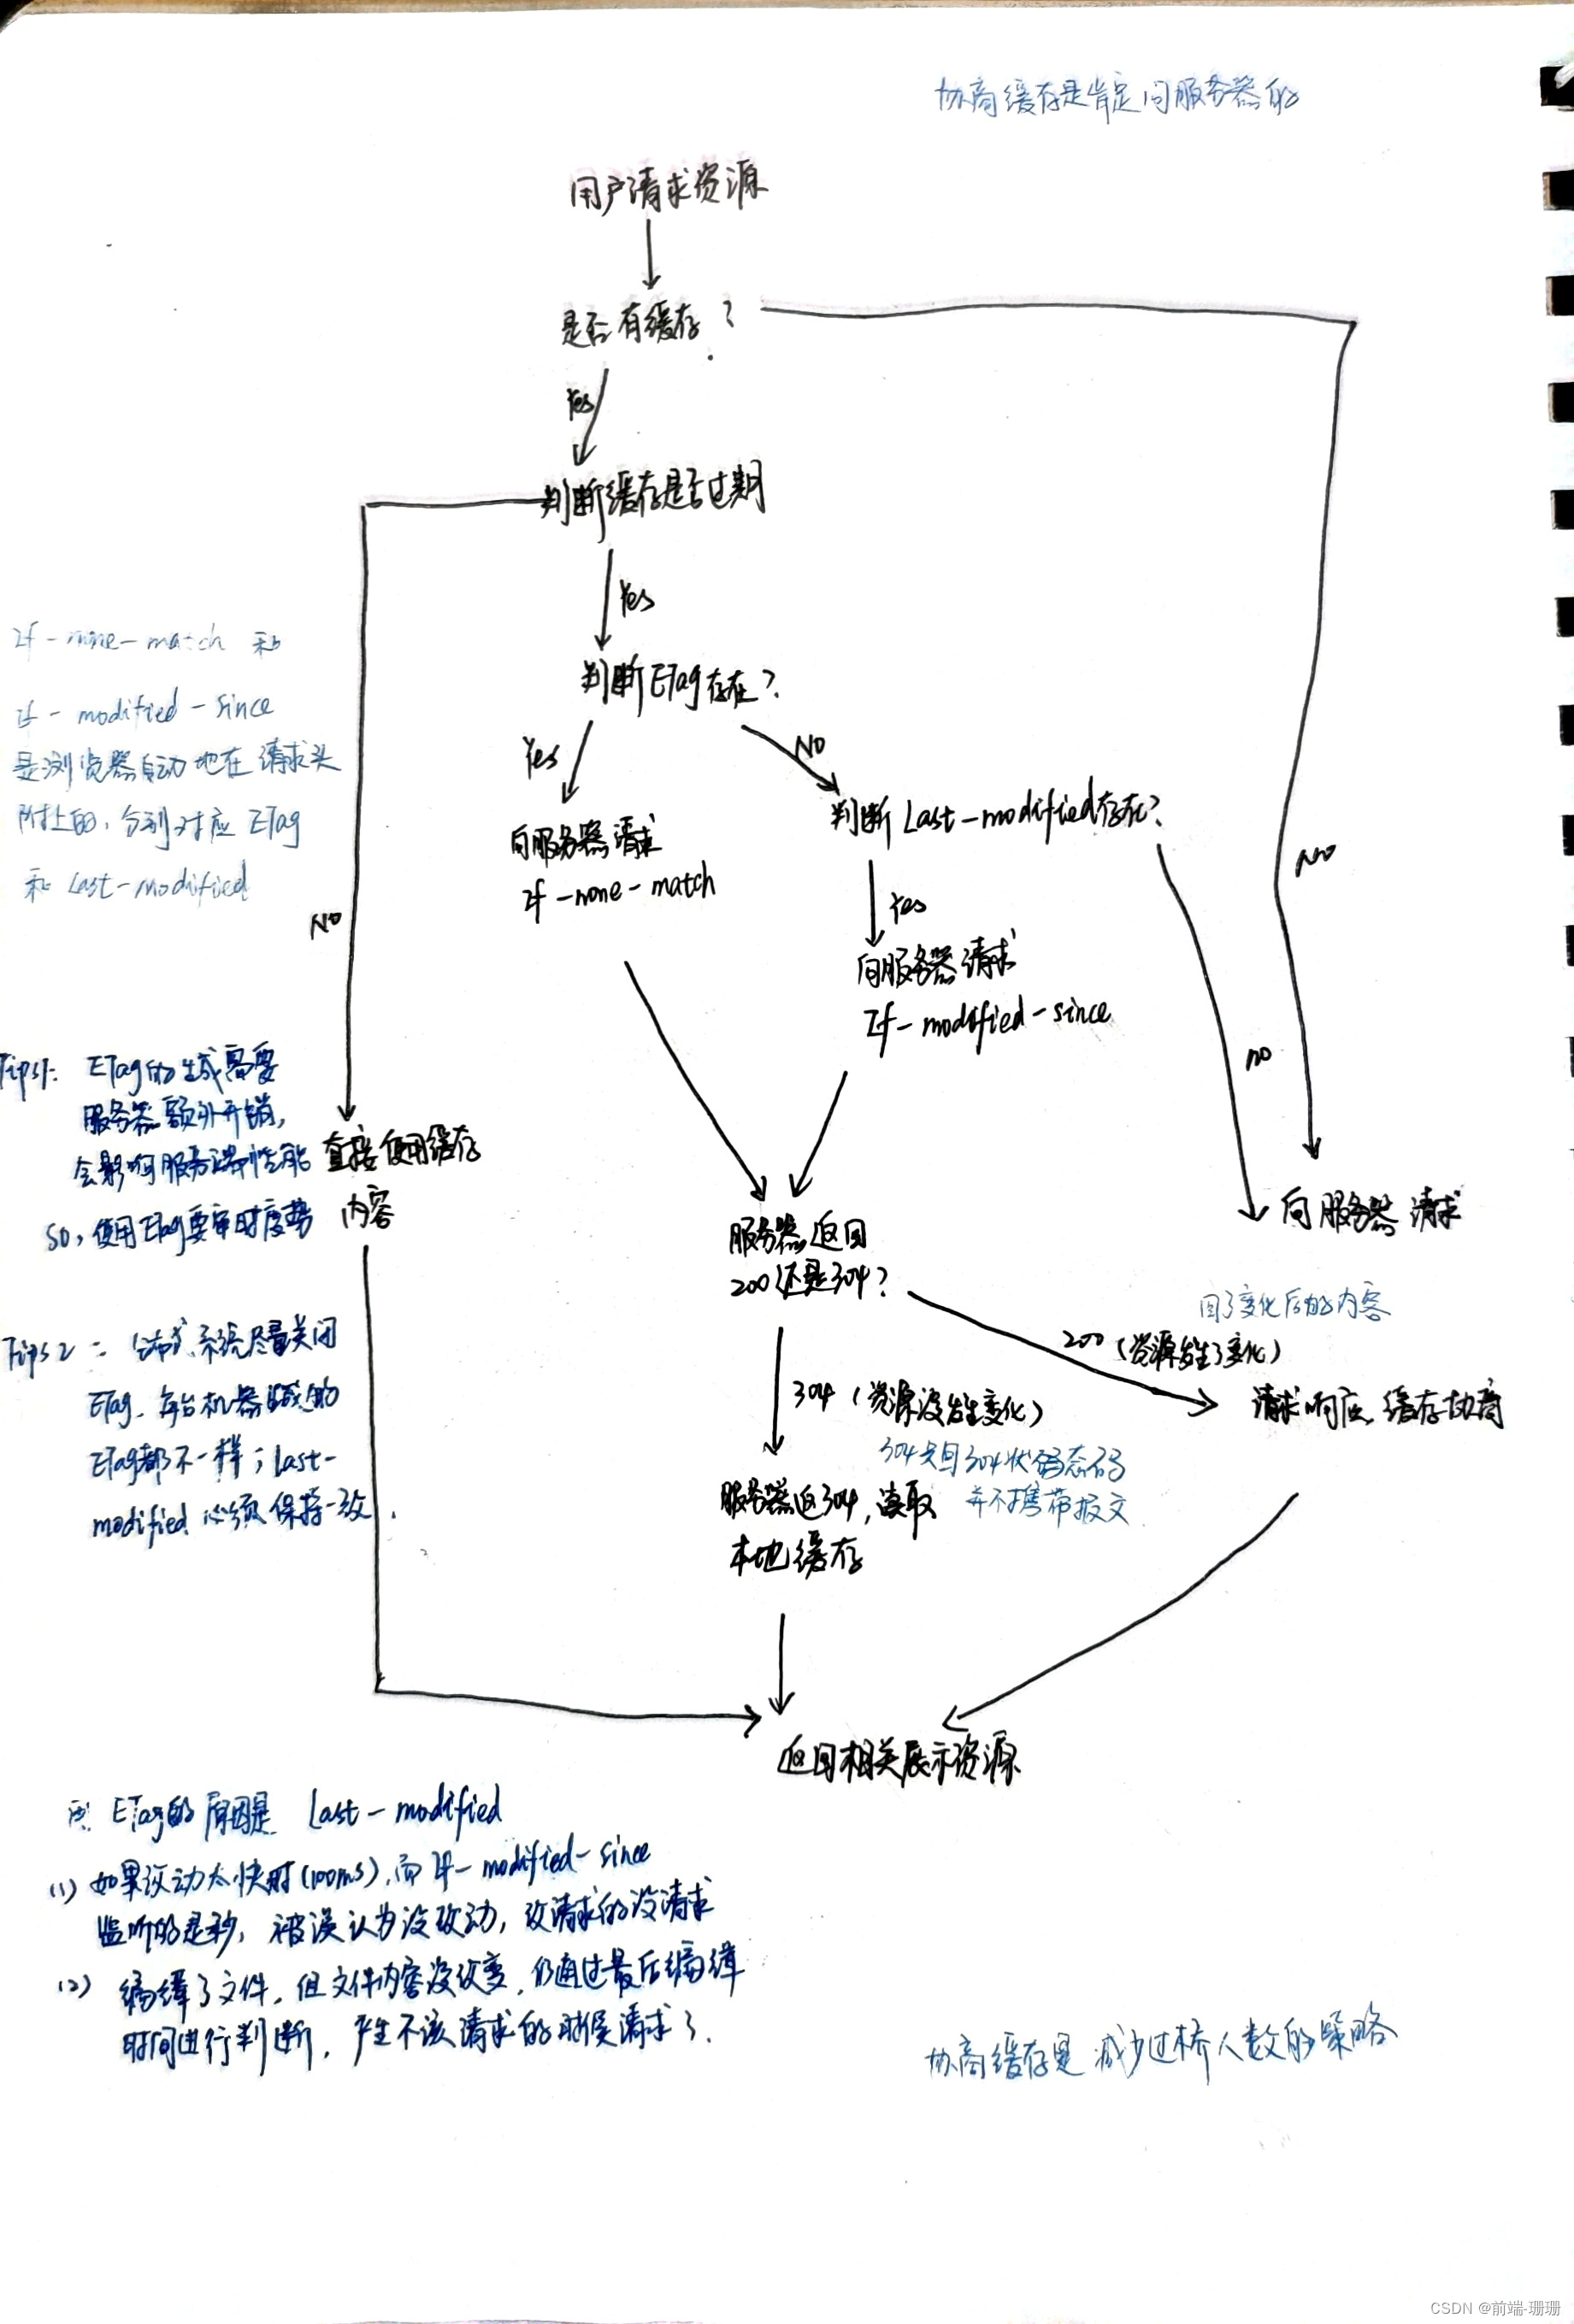 协商缓存是肯定问服务器的
用户请求资源
是否有缓存?
Yes
判断缓存是否过期
Yes
判断ETag存在?
If-none-match 和
if-modified-since
是浏览器自动地在请求头
附上的,分别对应 ETag
和 Last-modified
Yes
NO
向服务器请求
If-none-match
判断Last-modified存在?
Yes
NO
NO
向服务器请求
If-modified-since
no
Tips1: ETag的生成需要
服务器额外开销,
会影响服务端性能
so,使用ETag要审时度势
直接使用缓存
内容
服务器返回
200还是304?
向服务器请求
回了变化后的内容
200(资源发生了变化)
请求响应,缓存协商
304(资源没发生变化)
304只回304状态码
并不携带报文
服务器返304,读取
本地缓存
Tips2: 分布式系统尽量关闭
ETag,每台机器生成的
ETag都不一样;last-
modified必须保持一致.
返回相关展示资源
ETag的原因是 Last-modified
(1) 如果改动太快时(100ms),而If-modified-since
监听的是秒,被误认为没改动,改请求的没请求
(2) 编辑了文件,但文件内容没改变,仍通过最后编辑
时间进行判断,产生不该请求的时候请求了.
协商缓存是减少过桥人数的策略
CSDN @前端-珊珊